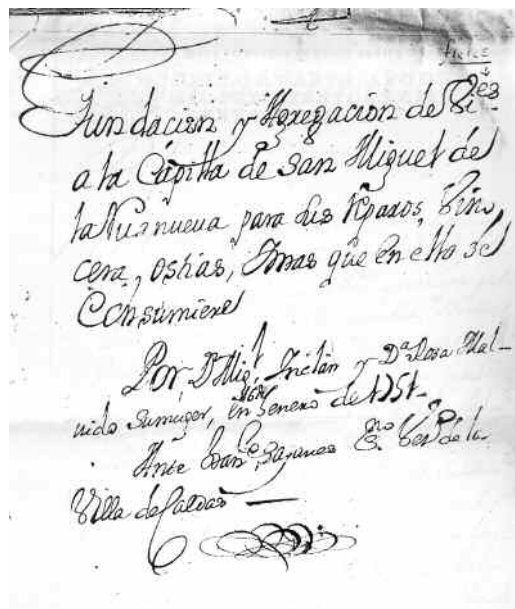 Fundacion y Agregacion de Bi-
a la Capilla de San Miguel de
la Pua nueva para sus Rparos, Bino,
cera, ostias, Y mas que en ello se
Consumiere
Por Dn Migl Inclan y Da Rosa Mal-
nido su muger, en Enero de 1751-
Ante Franco
Villa de Caldas